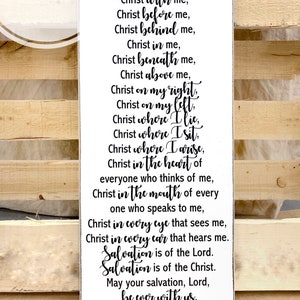 Christ with me,
Christ before me,
Christ behind me,
Christ in me,
Christ beneath me,
Christ above me,
Christ on my right,
Christ on my left,
Christ where I lie,
Christ where I sit,
Christ where I arise,
Christ in the heart of
everyone who thinks of me,
Christ in the mouth of every
one who speaks to me,
Christ in every eye that sees me,
Christ in every ear that hears me.
Salvation is of the Lord.
Salvation is of the Christ.
May your salvation, Lord,
be ever with us.